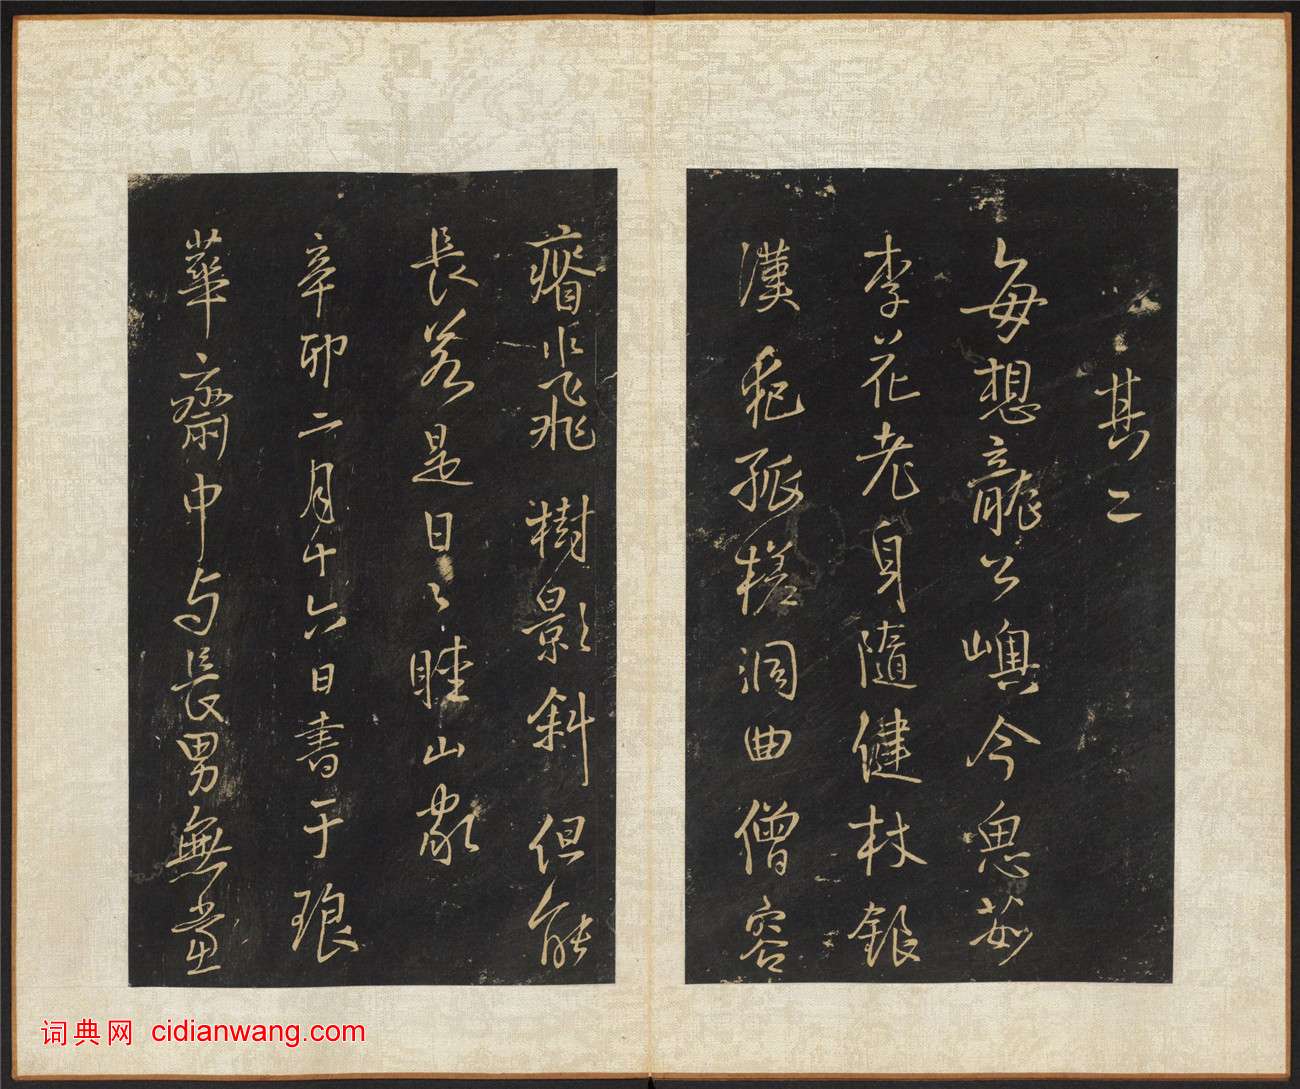 其二
每想龍公嶼今思茹
李花老身隨健杖銀
漢犯孤槎洞曲僧容
瘠飛樹影斜但能
長若是日々睦山家
辛卯二月十六日書于琅
華齋中与長男無黨
词典网 cidianwang.com